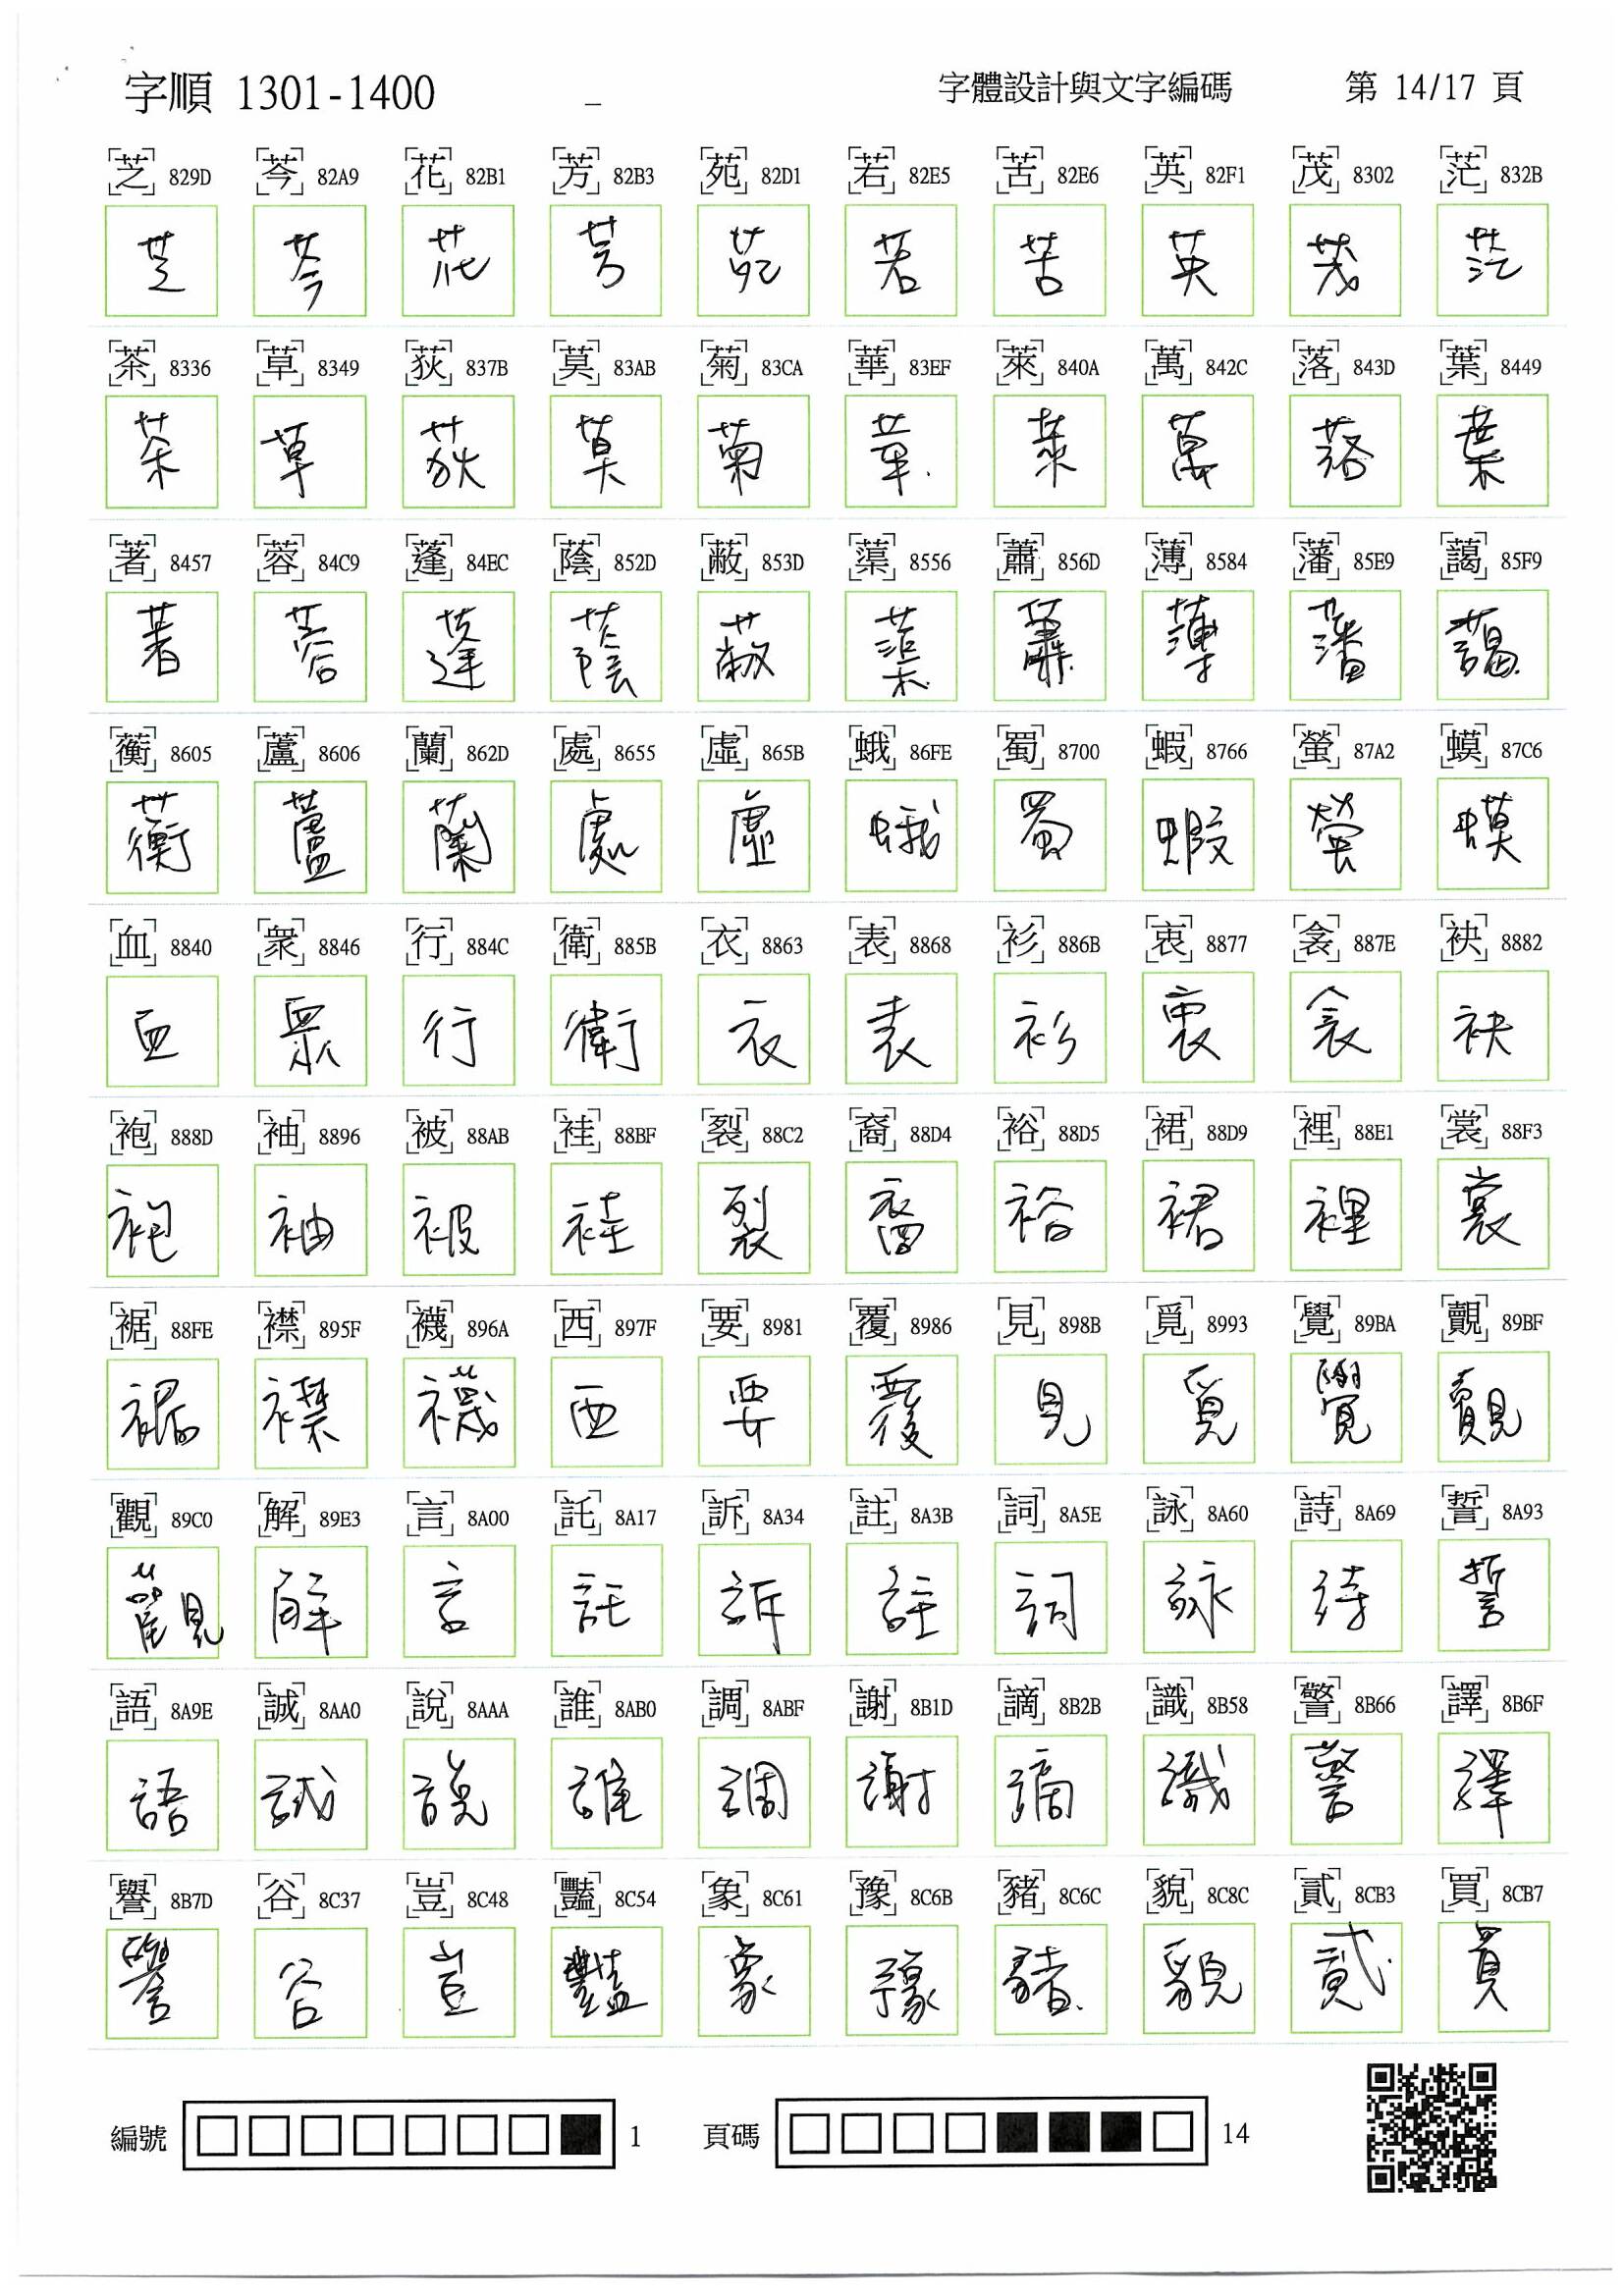 字順 1301-1400 字體設計與文字編碼 第 14/17 頁
芝 829D 芩 82A9 花 82B1 芳 82B3 苑 82D1 若 82E5 苦 82E6 英 82F1 茂 8302 茫 832B
芝 芩 花 芳 苑 若 苦 英 茂 茫
茶 8336 草 8349 荻 837B 莫 83AB 菊 83CA 華 83EF 萊 840A 萬 842C 落 843D 葉 8449
茶 草 荻 莫 菊 華 萊 萬 落 葉
著 8457 蓉 84C9 蓬 84EC 蔭 852D 蔽 853D 蕖 8556 蕭 856D 薄 8584 藩 85E9 藹 85F9
著 蓉 蓬 蔭 蔽 蕖 蕭 薄 藩 藹
蘅 8605 蘆 8606 蘭 862D 處 8655 虛 865B 蛾 86FE 蜀 8700 蝦 8766 螢 87A2 蟆 87C6
蘅 蘆 蘭 處 虛 蛾 蜀 蝦 螢 蟆
血 8840 衆 8846 行 884C 衛 885B 衣 8863 表 8868 衫 886B 衷 8877 衾 887E 袂 8882
血 衆 行 衛 衣 表 衫 衷 衾 袂
袍 888D 袖 8896 被 88AB 袿 88BF 裂 88C2 裔 88D4 裕 88D5 裙 88D9 裡 88E1 裳 88F3
袍 袖 被 袿 裂 裔 裕 裙 裡 裳
裾 88FE 襟 895F 襪 896A 西 897F 要 8981 覆 8986 見 898B 覓 8993 覺 89BA 覿 89BF
裾 襟 襪 西 要 覆 見 覓 覺 覿
觀 89C0 解 89E3 言 8A00 託 8A17 訴 8A34 註 8A3B 詞 8A5E 詠 8A60 詩 8A69 誓 8A93
觀 解 言 託 訴 註 詞 詠 詩 誓
語 8A9E 誠 8AA0 說 8AAA 誰 8AB0 調 8ABF 謝 8B1D 謫 8B2B 識 8B58 警 8B66 譯 8B6F
語 誠 說 誰 調 謝 謫 識 警 譯
譽 8B7D 谷 8C37 豈 8C48 豔 8C54 象 8C61 豫 8C6B 豬 8C6C 貌 8C8C 貳 8CB3 買 8CB7
譽 谷 豈 豔 象 豫 豬 貌 貳 買
編號 1 頁碼 14